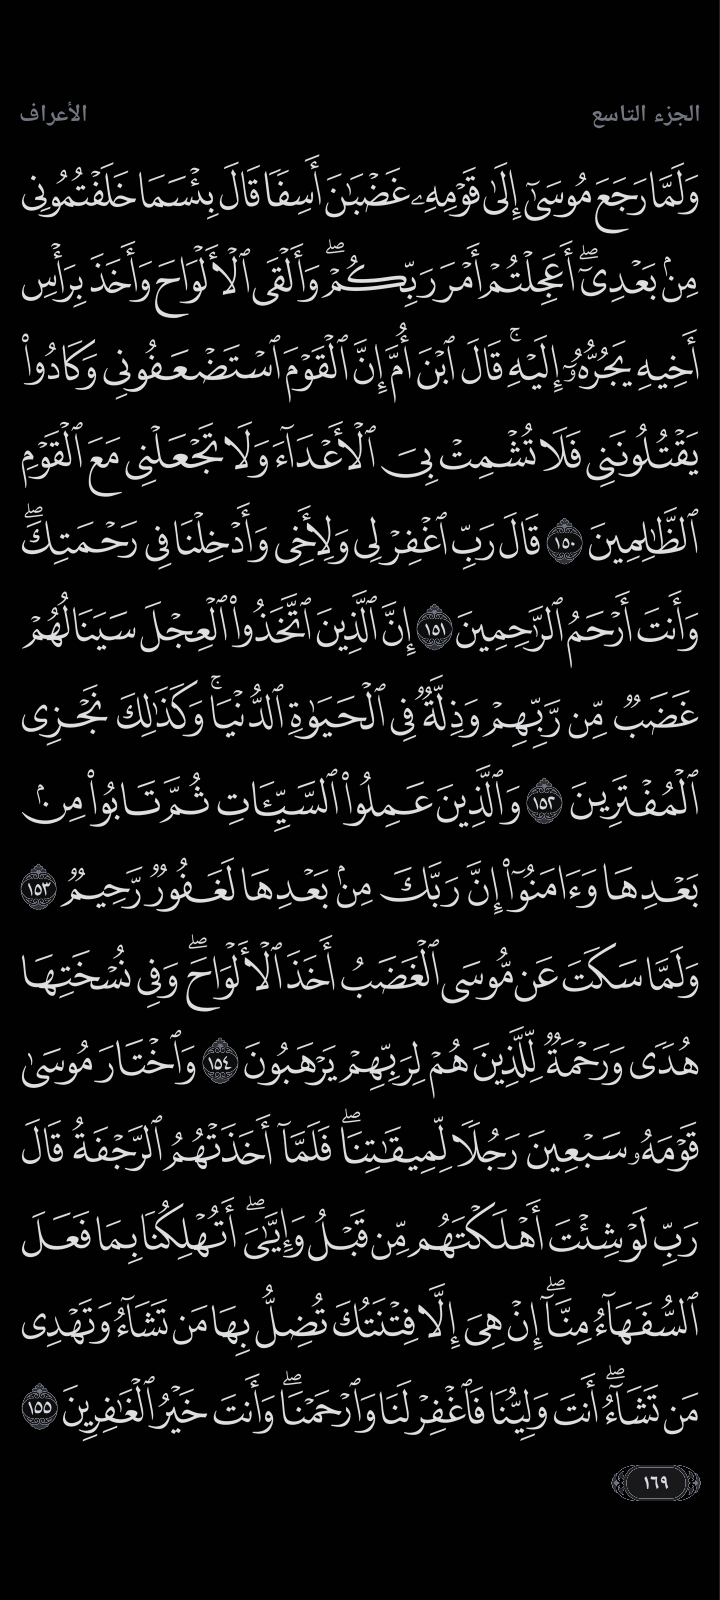 الجزء التاسع
الأعراف
وَلَمَّا رَجَعَ مُوسَىٰٓ إِلَىٰ قَوْمِهِۦ غَضْبَٰنَ أَسِفًا قَالَ بِئْسَمَا خَلَفْتُمُونِى
مِنۢ بَعْدِىٓۖ أَعَجِلْتُمْ أَمْرَ رَبِّكُمْۖ وَأَلْقَى ٱلْأَلْوَاحَ وَأَخَذَ بِرَأْسِ
أَخِيهِ يَجُرُّهُۥٓ إِلَيْهِۚ قَالَ ٱبْنَ أُمَّ إِنَّ ٱلْقَوْمَ ٱسْتَضْعَفُونِى وَكَادُوا۟
يَقْتُلُونَنِى فَلَا تُشْمِتْ بِىَ ٱلْأَعْدَآءَ وَلَا تَجْعَلْنِى مَعَ ٱلْقَوْمِ
ٱلظَّٰلِمِينَ ١٥٠ قَالَ رَبِّ ٱغْفِرْ لِى وَلِأَخِى وَأَدْخِلْنَا فِى رَحْمَتِكَۖ
وَأَنتَ أَرْحَمُ ٱلرَّٰحِمِينَ ١٥١ إِنَّ ٱلَّذِينَ ٱتَّخَذُوا۟ ٱلْعِجْلَ سَيَنَالُهُمْ
غَضَبٌ مِّن رَّبِّهِمْ وَذِلَّةٌ فِى ٱلْحَيَوٰةِ ٱلدُّنْيَاۚ وَكَذَٰلِكَ نَجْزِى
ٱلْمُفْتَرِينَ ١٥٢ وَٱلَّذِينَ عَمِلُوا۟ ٱلسَّيِّـَٔاتِ ثُمَّ تَابُوا۟ مِنۢ
بَعْدِهَا وَءَامَنُوٓا۟ إِنَّ رَبَّكَ مِنۢ بَعْدِهَا لَغَفُورٌ رَّحِيمٌ ١٥٣
وَلَمَّا سَكَتَ عَن مُّوسَى ٱلْغَضَبُ أَخَذَ ٱلْأَلْوَاحَۖ وَفِى نُسْخَتِهَا
هُدًى وَرَحْمَةٌ لِّلَّذِينَ هُمْ لِرَبِّهِمْ يَرْهَبُونَ ١٥٤ وَٱخْتَارَ مُوسَىٰ
قَوْمَهُۥ سَبْعِينَ رَجُلًا لِّمِيقَٰتِنَاۖ فَلَمَّآ أَخَذَتْهُمُ ٱلرَّجْفَةُ قَالَ
رَبِّ لَوْ شِئْتَ أَهْلَكْتَهُم مِّن قَبْلُ وَإِيَّٰىَۖ أَتُهْلِكُنَا بِمَا فَعَلَ
ٱلسُّفَهَآءُ مِنَّآۖ إِنْ هِىَ إِلَّا فِتْنَتُكَ تُضِلُّ بِهَا مَن تَشَآءُ وَتَهْدِى
مَن تَشَآءُۖ أَنتَ وَلِيُّنَا فَٱغْفِرْ لَنَا وَٱرْحَمْنَاۖ وَأَنتَ خَيْرُ ٱلْغَٰفِرِينَ ١٥٥
١٦٩